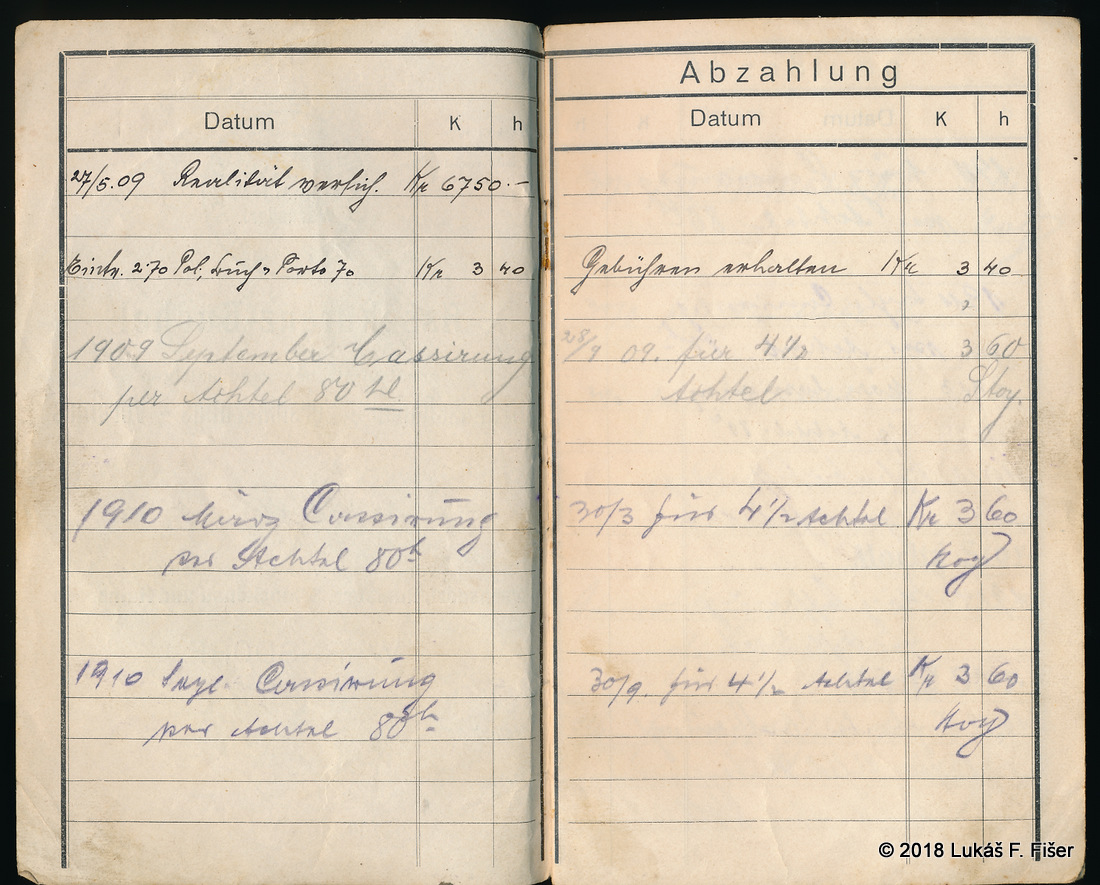 Datum K h
27/5.09 Realität versich. Kr 6750.—
Eintr. 2.70 Pol., Buch, Porto 70 Kr 3 40
1909 September Cassirung
per Achtel 80 hl
1910 März Cassirung
per Achtel 80 h
1910 Sept. Cassirung
per Achtel 80 h
Abzahlung
Datum K h
Gebühren erhalten Kr 3 40
28/9 09. für 4 1/2 3 60
Achtel
30/3 für 4 1/2 Achtel Kr 3 60
30/9. für 4 1/2 Achtel Kr 3 60
© 2018 Lukáš F. Fišer